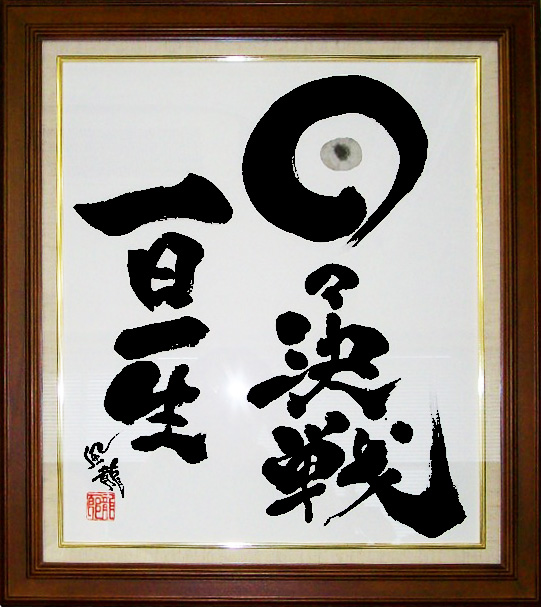 日々決戦
一日一生